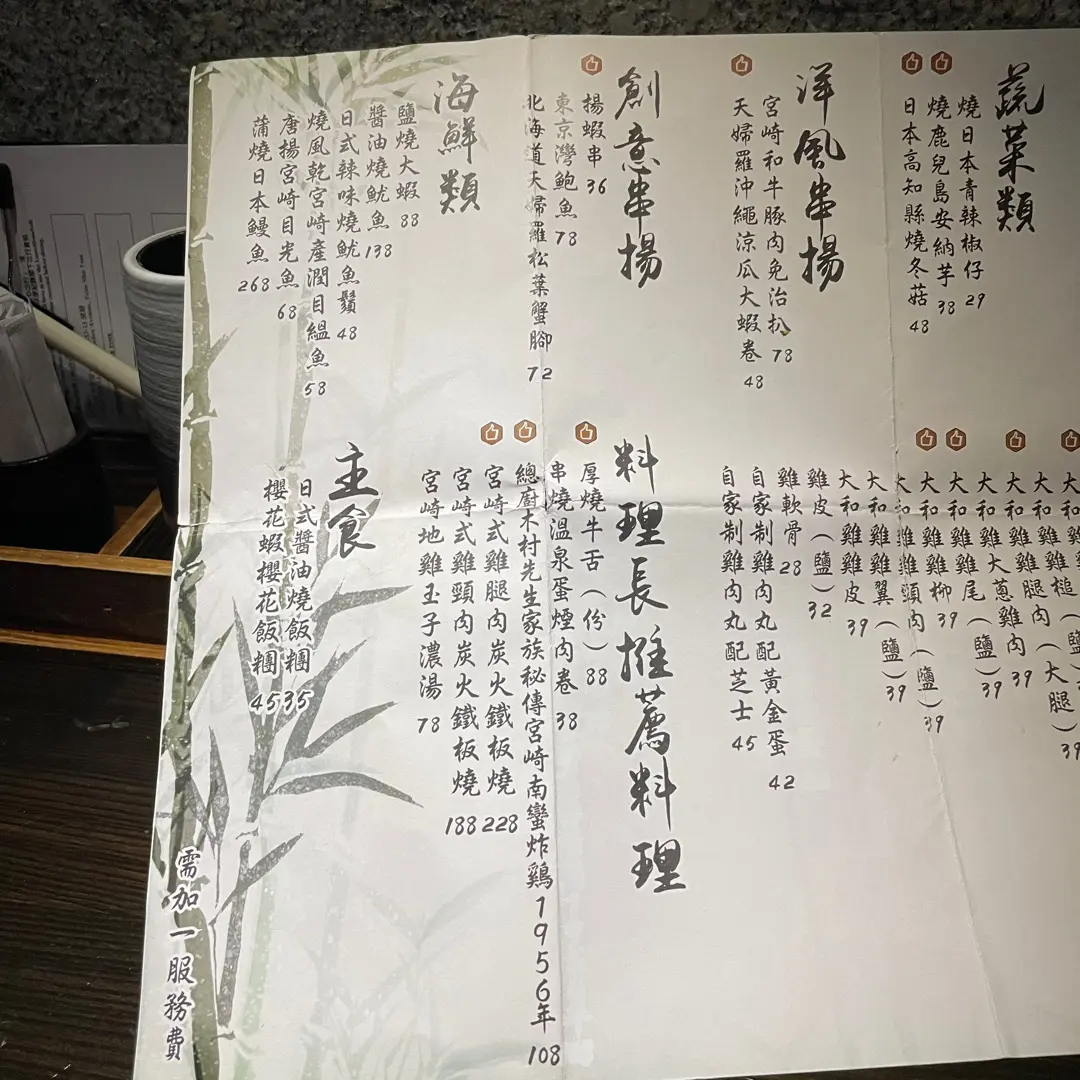 蔬菜類
燒日本青辣椒仔 29
燒鹿兒島安納芋 38
日本高知縣燒冬菇 48
洋風串揚
宮崎和牛豚肉免治扒 78
天婦羅沖繩涼瓜大蝦卷 48
創意串揚
揚蝦串 36
東京灣鮑魚 78
北海道天婦羅松葉蟹腳 72
海鮮類
鹽燒大蝦 88
醬油燒魷魚 138
日式辣味燒魷魚鬚 48
燒風乾宮崎產潤目鰮魚 58
唐揚宮崎目光魚 68
蒲燒日本鰻魚 268
大腿)39
大和雞腿肉 39
大和大蔥雞肉 39
大和雞尾(鹽)39
大和雞柳 39
大和雞頸肉(鹽)39
大和雞翼(鹽)39
大和雞皮 39
雞皮(鹽)32
雞軟骨 28
自家制雞肉丸配黃金蛋 42
自家制雞肉丸配芝士 45
料理長推薦料理
厚燒牛舌(份)88
串燒溫泉蛋煙肉卷 38
總廚木村先生家族秘傳宮崎南蠻炸鷄1956年 108
宮崎式雞腿肉炭火鐵板燒 228
宮崎式雞頸肉炭火鐵板燒 188
宮崎地雞玉子濃湯 78
主食
日式醬油燒飯糰 35
櫻花蝦櫻花飯糰 45
需加一服務費